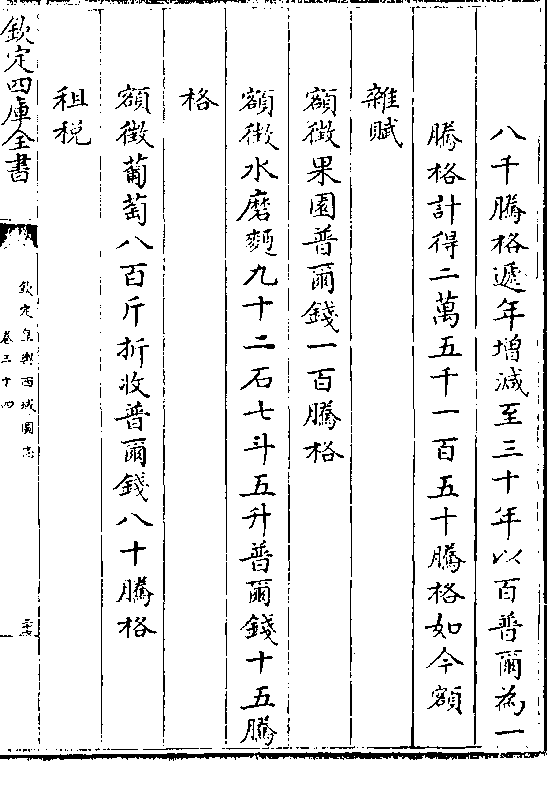 八千騰格遞年增減至三十年以百普爾為一
騰格計得二萬五千一百五十騰格如今額
雜賦
額徵果園普爾錢一百騰格
額徵水磨麪九十二石七斗五升普爾錢十五騰
格
額徵葡萄八百斤折收普爾錢八十騰格
租税
欽定四庫全書
欽定皇輿西域圖志
卷三十四